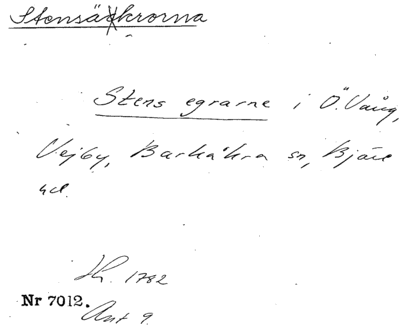 Stensäkrorna
Stens egrarne i Ö. Vång,
Vejby, Barkåkra sn, Bjäre
hd.
Sk. 1782
Nr 7012.
Akt 9.